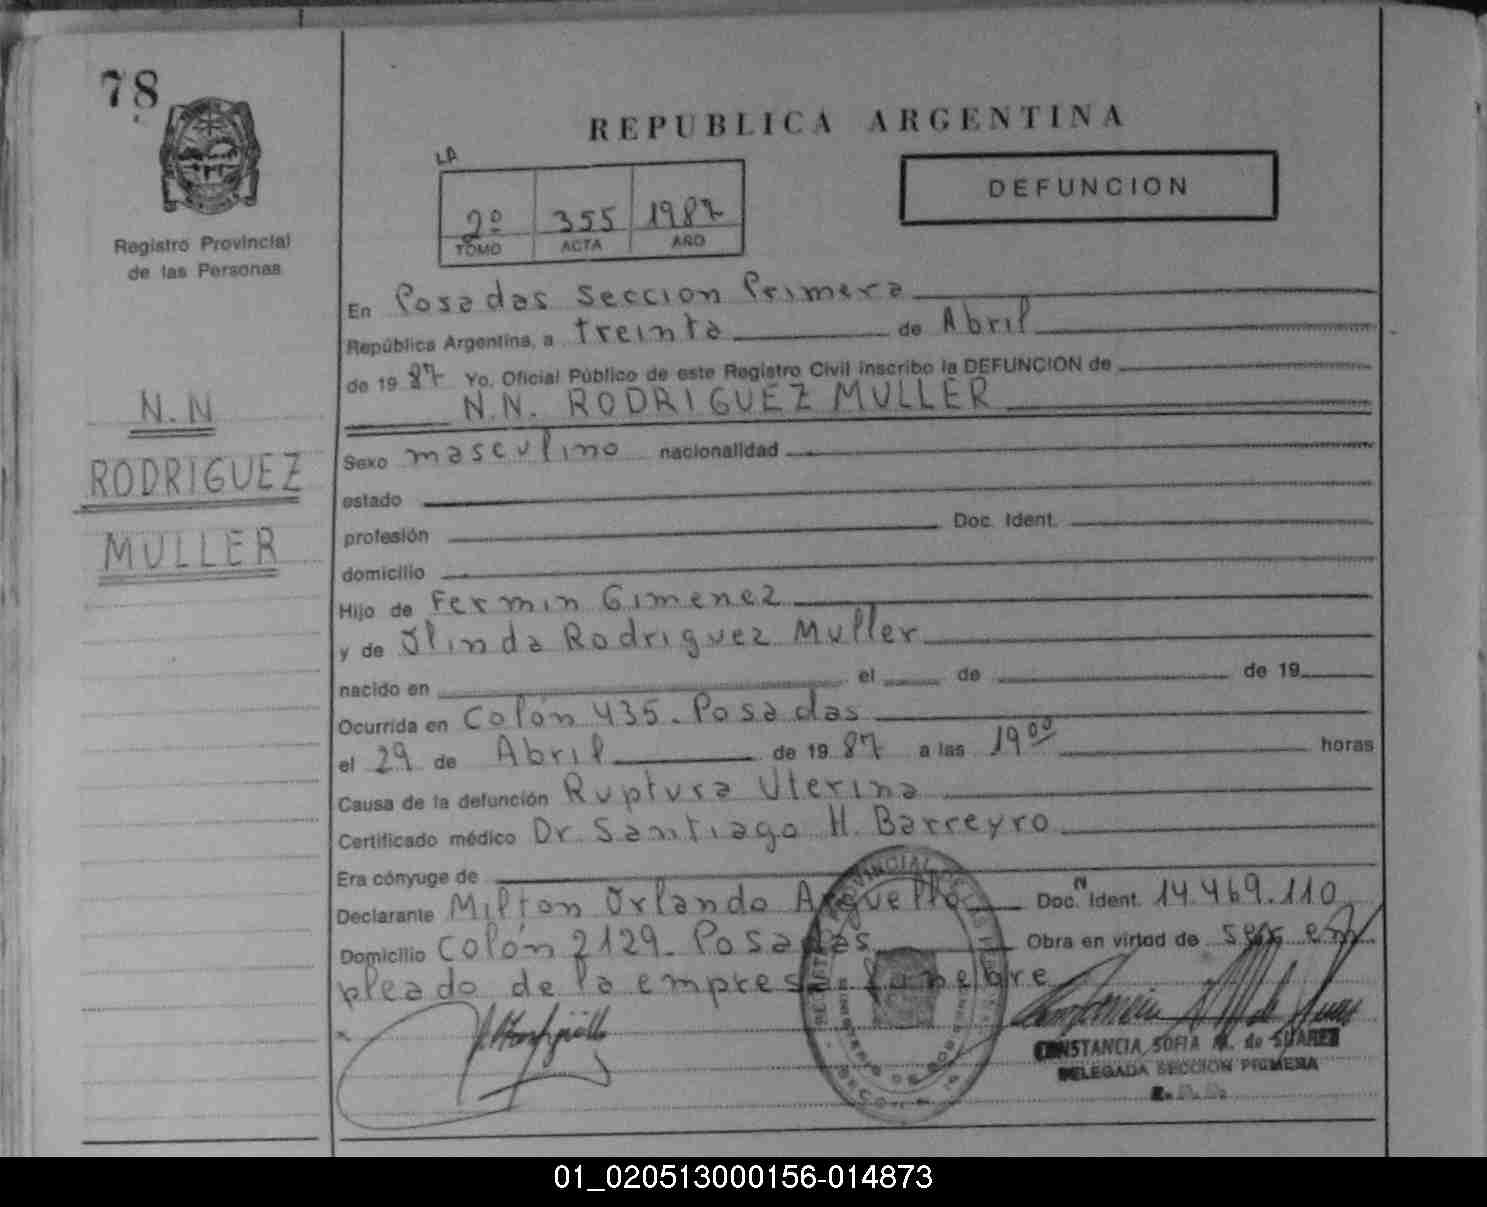 78
Registro Provincial
de las Personas
N.N
RODRIGUEZ
MULLER
REPUBLICA ARGENTINA
LA
2º 355 1987
TOMO ACTA AÑO
DEFUNCION
En Posadas Seccion Primera
República Argentina, a treinta de Abril
de 19 87 Yo, Oficial Público de este Registro Civil inscribo la DEFUNCION de
N.N. RODRIGUEZ MULLER
Sexo masculino nacionalidad
estado
profesión Doc. Ident.
domicilio
Hijo de Fermin Gimenez
y de Olinda Rodriguez Muller
nacido en el de de 19
Ocurrida en Colón 435. Posadas
el 29 de Abril de 19 87 a las 19 00 horas
Causa de la defunción Ruptura Uterina
Certificado médico Dr. Santiago H. Barreyro
Era cónyuge de
Declarante Milton Orlando Arguello Doc. N Ident. 14.469.110
Domicilio Colón 2129. Posadas Obra en virtud de ser em
pleado de la empresa funebre
CONSTANCIA SOFIA M. de SUAREZ
DELEGADA SECCION PRIMERA
01_020513000156-014873